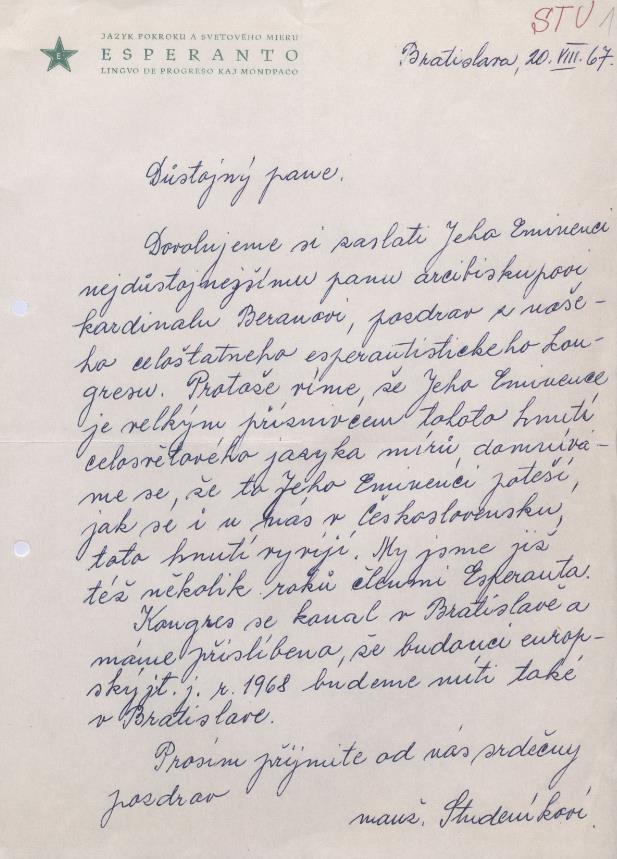 STU 1
JAZYK POKROKU A SVETOVÉHO MIERU
E
ESPERANTO
LINGVO DE PROGRESO KAJ MONDPACO
Bratislava, 20. VIII. 67.
Důstojný pane.
Dovolujeme si zaslati Jeho Eminenci
nejdůstojnejšímu panu arcibiskupovi
kardinalu Beranovi, pozdrav z naše-
ho celoštatneho esperantistickeho kon-
gresu. Protože víme, že Jeho Eminence
je velkým příznivcem tohoto hnutí
celosvětového jazyka mírů, domnívá-
me se, že to Jeho Eminenci poteší,
jak se i u nás v Československu,
toto hnutí vyvíjí. My jsme již
též několik roků členmi Esperanta.
Kongres se konal v Bratislavě a
máme přislíbeno, že budouci europ-
ský t. j. r. 1968 budeme míti také
v Bratislave.
Prosím přijmite od nás srdečny
pozdrav
manž. Studeníkovi.